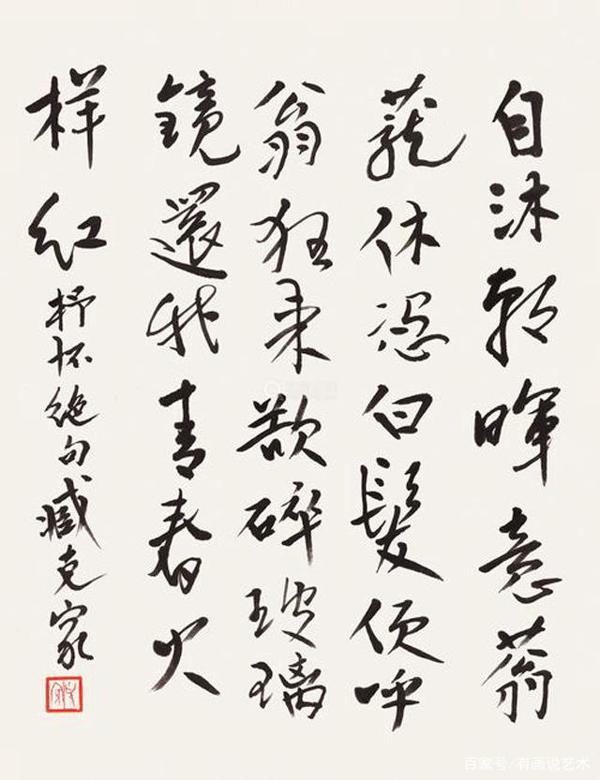 自沐朝暉意蓊
蘢休憑白髮便呼
翁狂来欲碎玻璃
鏡還我青春火
样红
抒怀絶句臧克家
百家号/有画说艺术